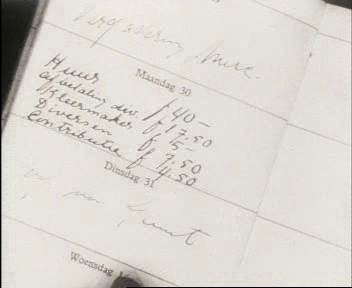 Vergadering Mure.
Maandag 30
Huur f 40-
afbetaling div. f 17.50
Kleermaker f 5-
Diversen f 7.50
Contributie f 4.50
Dinsdag 31
Woensdag